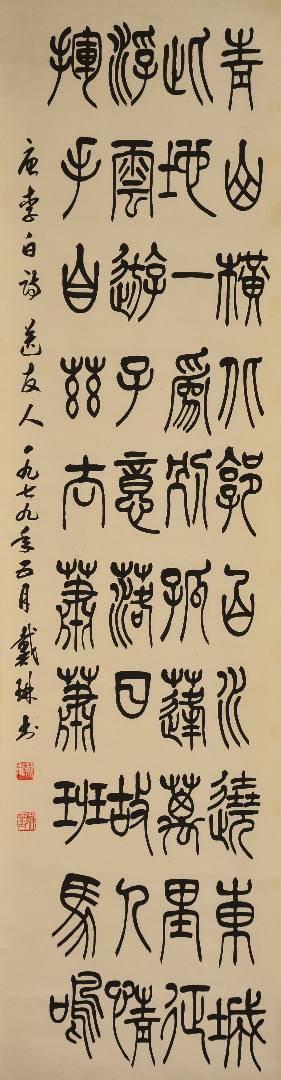 青山橫北郭白水遶東城
此地一為別孤蓬萬里征
浮雲遊子意落日故人情
揮手自茲去蕭蕭班馬鳴
唐李白詩 送友人 一九七九年五月 戴琳书